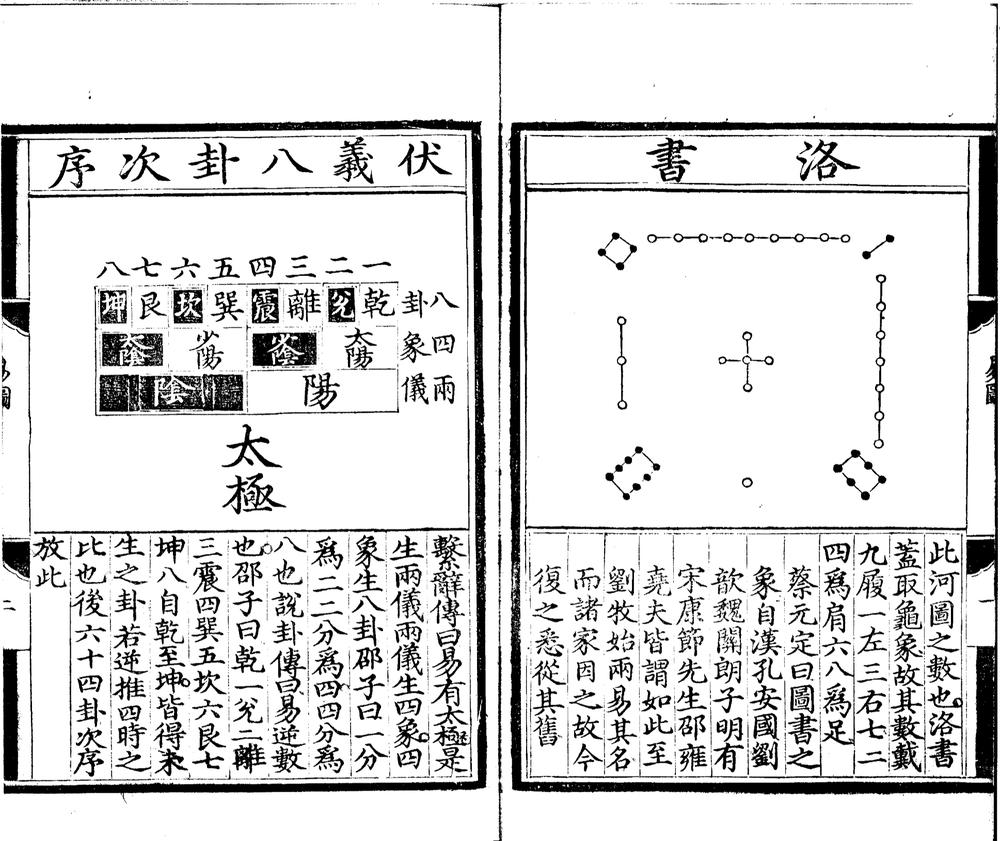 洛書
此河圖之數也洛書
蓋取龜象故其數戴
九履一左三右七二
四爲肩六八爲足
蔡元定曰圖書之
象自漢孔安國劉
歆魏關朗子明有
宋康節先生邵雍
堯夫皆謂如此至
劉牧始兩易其名
而諸家因之故今
復之悉從其舊
一
伏羲八卦次序
一二三四五六七八
八卦乾兌離震巽坎艮坤
四象太陽少陰少陽太陰
兩儀陽陰
太極
繫辭傳曰易有太極是
生兩儀兩儀生四象四
象生八卦邵子曰一分
爲二二分爲四四分爲
八也說卦傳曰易逆數
也邵子曰乾一兌二離
三震四巽五坎六艮七
坤八自乾至坤皆得未
生之卦若逆推四時之
比也後六十四卦次序
放此
二